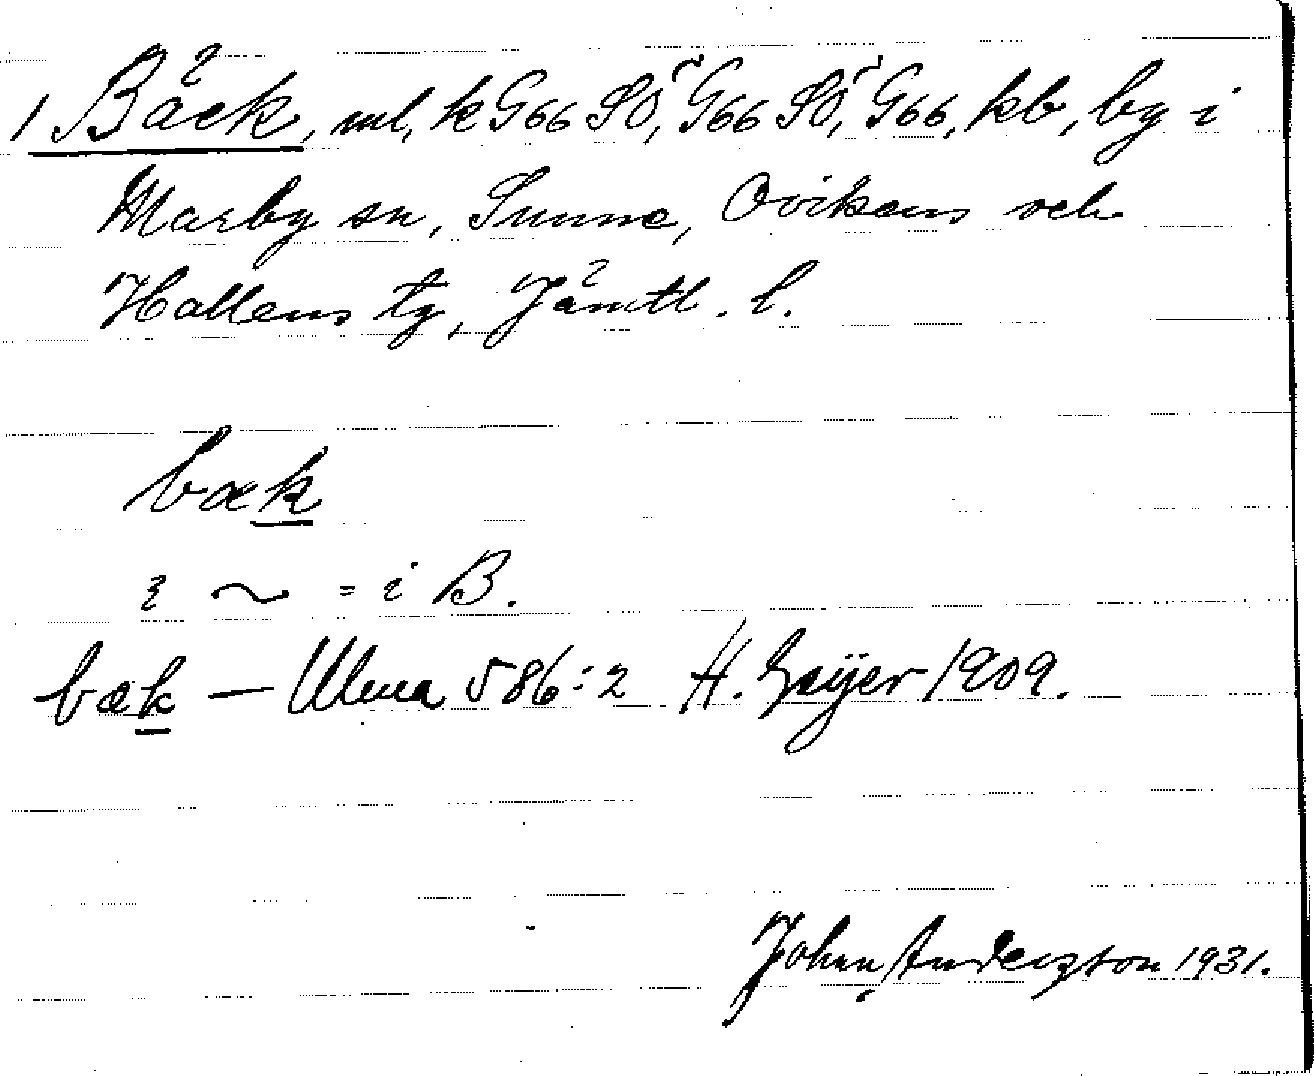 1 Bäck, ml, k G66 SO, G66 SO, G66, kb, by i
Marby sn, Sunne, Ovikens och
Hallens tg, Jämtl. l.
bæk
ⱬ ~ = i B.
bæk — Ulma 586:2 H. Geijer 1909.
John Anderzton 1931.